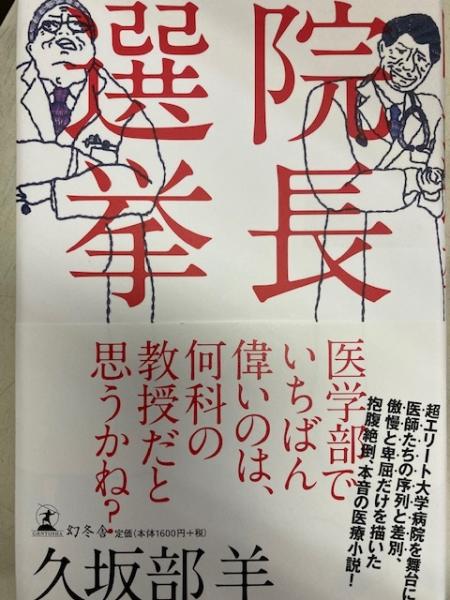 院長
選挙
医学部で
いちばん
偉いのは、
何科の
教授だと
思うかね?
超エリート大学病院を舞台に
医師たちの序列と差別、
傲慢と卑屈だけを描いた
抱腹絶倒、本音の医療小説!
GENTOSHA
幻冬舎 定価(本体1600円+税)
久坂部 羊